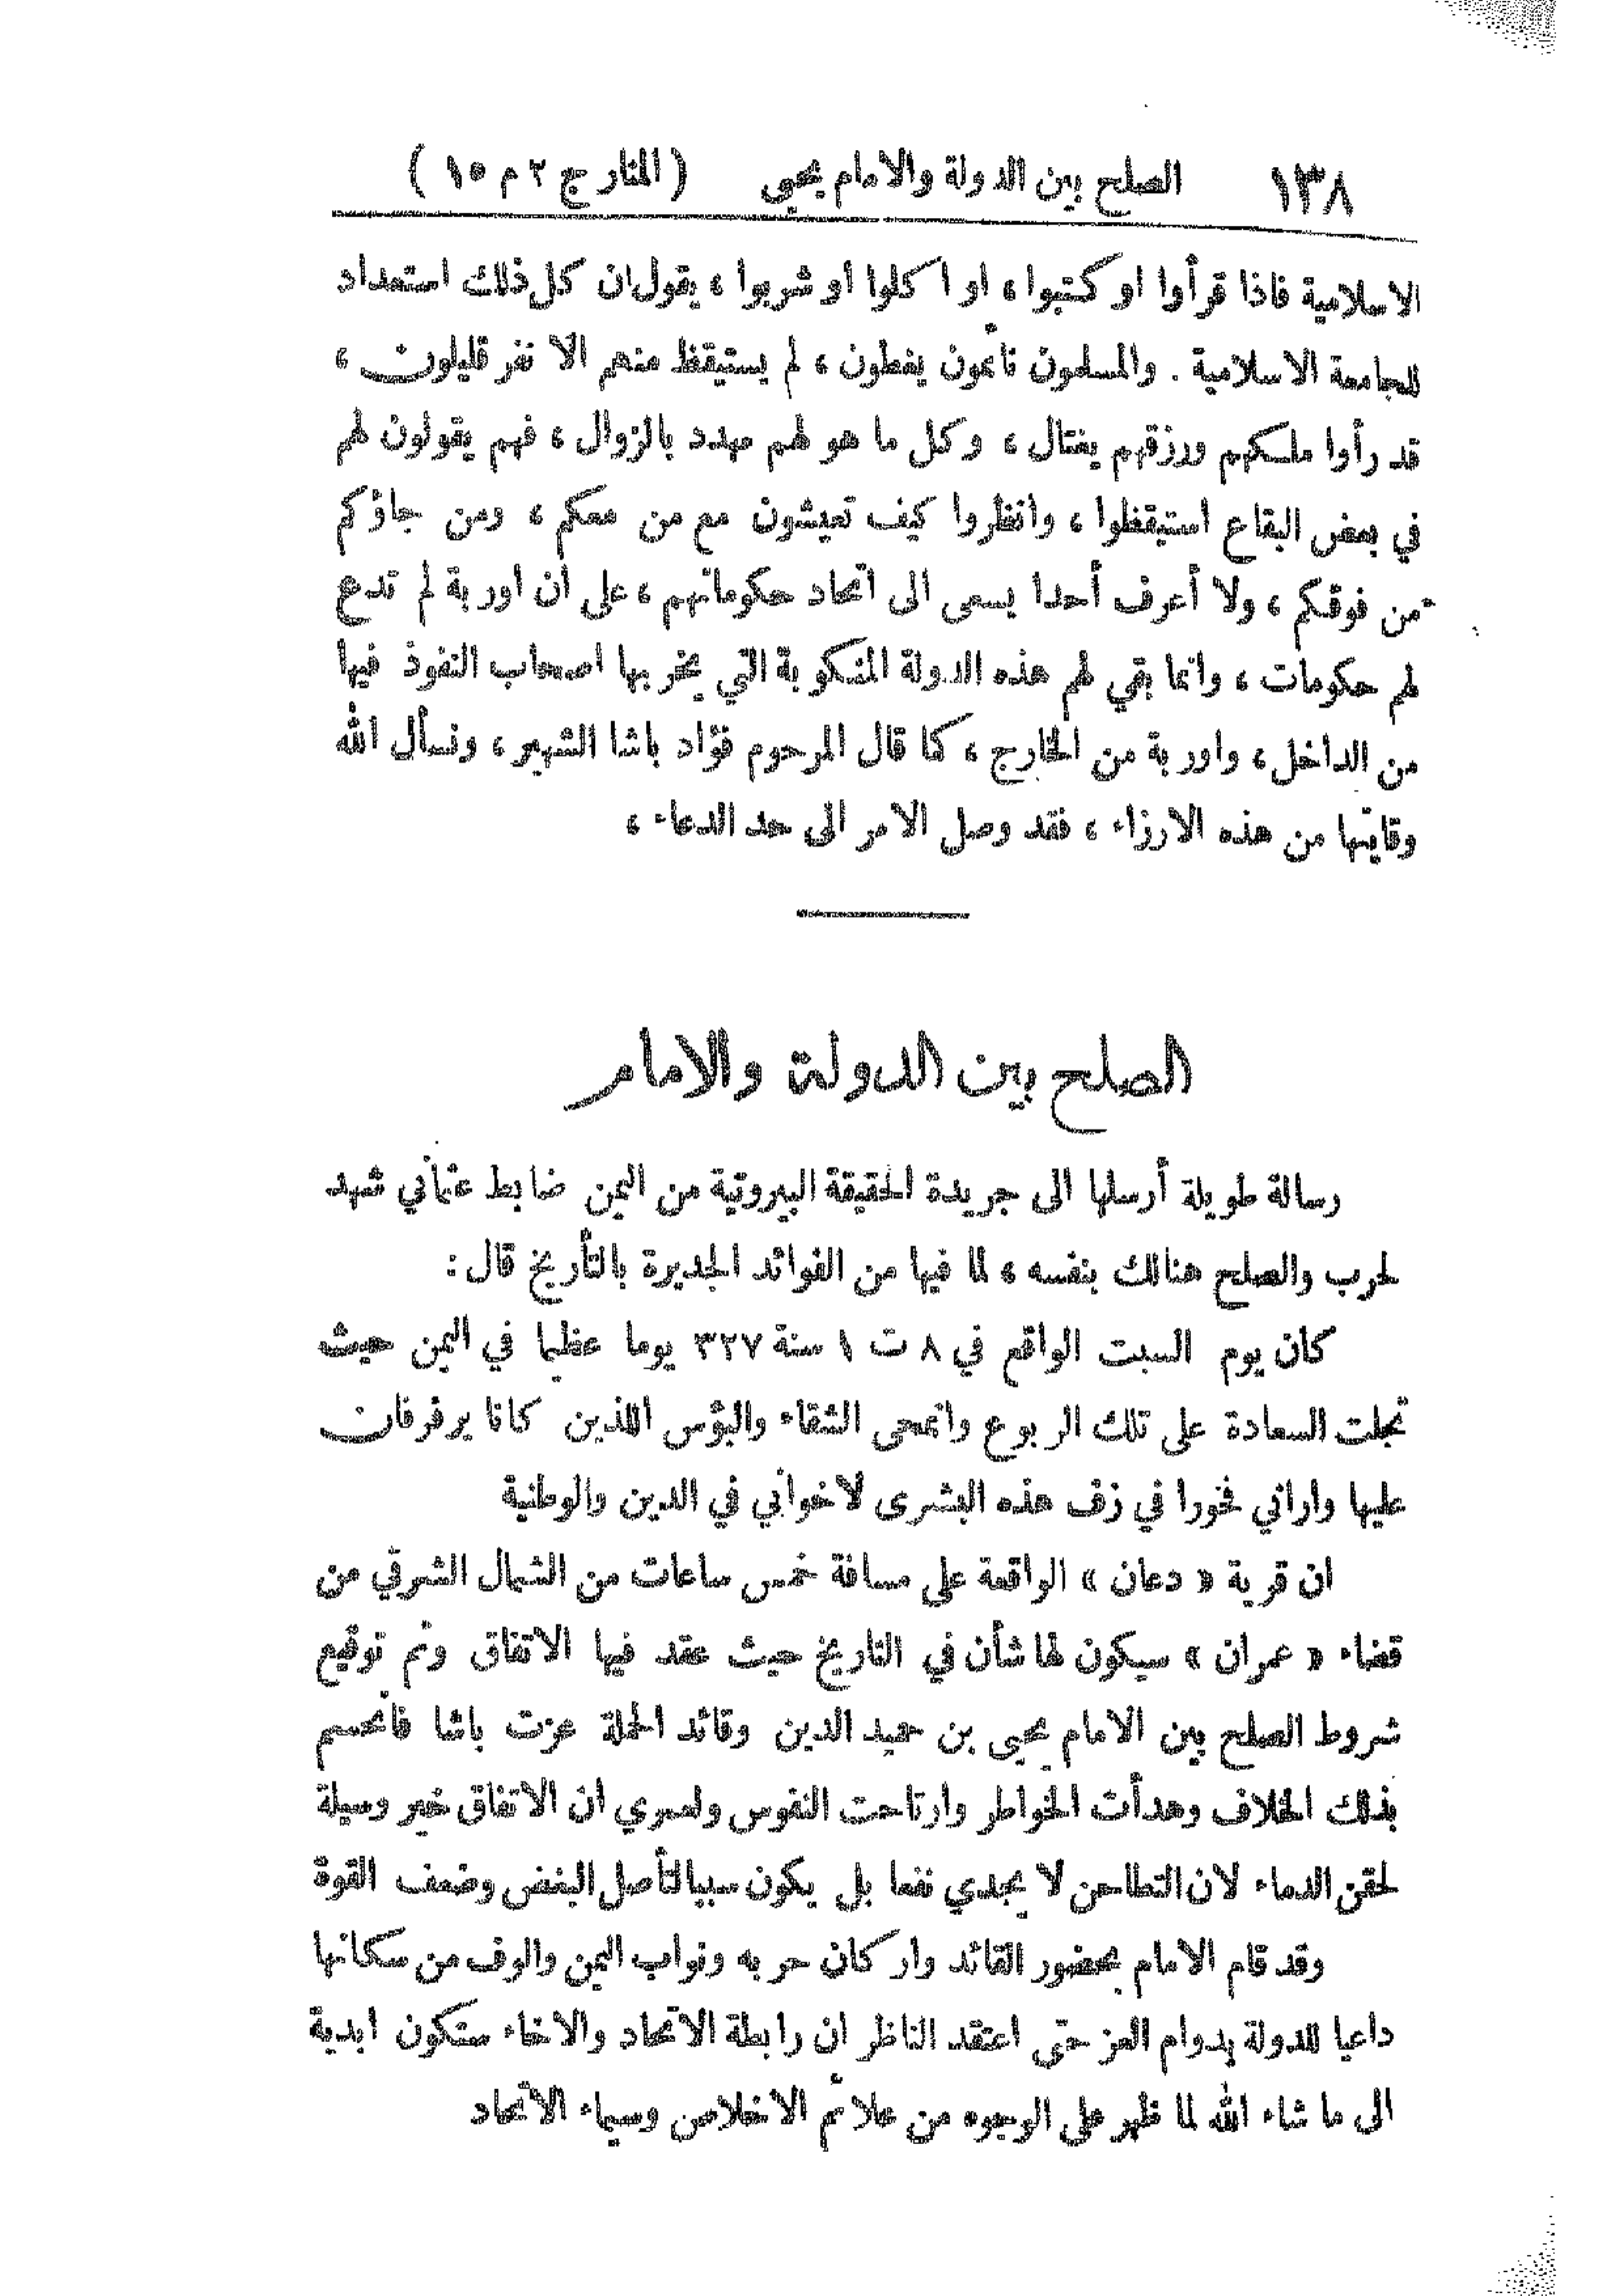 ١٣٨ الصلح بين الدولة والامام يحيى (المنار ج ٢ م ١٥)
الاسلامية فاذا قرأوا او كتبوا، او اكلوا أو شربوا، يقول ان كل ذلك استعداد
للجامعة الاسلامية. والمسلمون نائمون يغطون، لم يستيقظ منهم الا نفر قليلون،
قد رأوا ملكهم ورزقهم يغتال، وكل ما هو لهم مهدد بالزوال، فهم يقولون لهم
في بعض البقاع استيقظوا، وانظروا كيف تعيشون مع من معكم، ومن جاؤكم
من فوقكم، ولا أعرف أحدا يسعى الى اتحاد حكوماتهم، على ان اوربة لم تدع
لهم حكومات، وانما بقي لهم هذه الدولة المنكوبة التي يخربها اصحاب النفوذ فيها
من الداخل، واوربة من الخارج، كما قال المرحوم فؤاد باشا الشهير، ونسأل الله
وقايتها من هذه الارزاء، فقد وصل الامر الى حد الدعاء،
الصلح بين الدولة والامام
رسالة طويلة أرسلها الى جريدة الحقيقة البيروتية من اليمن ضابط عثماني شهد
لحرب والصلح هنالك بنفسه، لما فيها من الفوائد الجديرة بالتأريخ قال:
كان يوم السبت الواقع في ٨ ت ١ سنة ٣٢٧ يوما عظيما في اليمن حيث
تجلت السعادة على تلك الربوع وانمحى الشقاء والبؤس اللذين كانا يرفرفان
عليها واراني فخورا في زف هذه البشرى لاخواني في الدين والوطنية
ان قرية « دعان » الواقعة على مسافة خمس ساعات من الشمال الشرقي من
قضاء « عمران » سيكون لها شأن في التاريخ حيث عقد فيها الاتفاق وتم توقيع
شروط الصلح بين الامام يحيى بن حميد الدين وقائد الحملة عزت باشا فانحسم
بذلك الخلاف وهدأت الخواطر وارتاحت النفوس ولعمري ان الاتفاق خير وسيلة
لحقن الدماء لان التطاحن لا يجدي نفعا بل يكون سببا لتأصل البغض وضعف القوة
وقد قام الامام بحضور القائد واركان حربه ونواب اليمن والوف من سكانها
داعيا للدولة بدوام العز حتى اعتقد الناظر ان رابطة الاتحاد والاخاء ستكون ابدية
الى ما شاء الله لما ظهر على الوجوه من علائم الاخلاص وسيماء الاتحاد